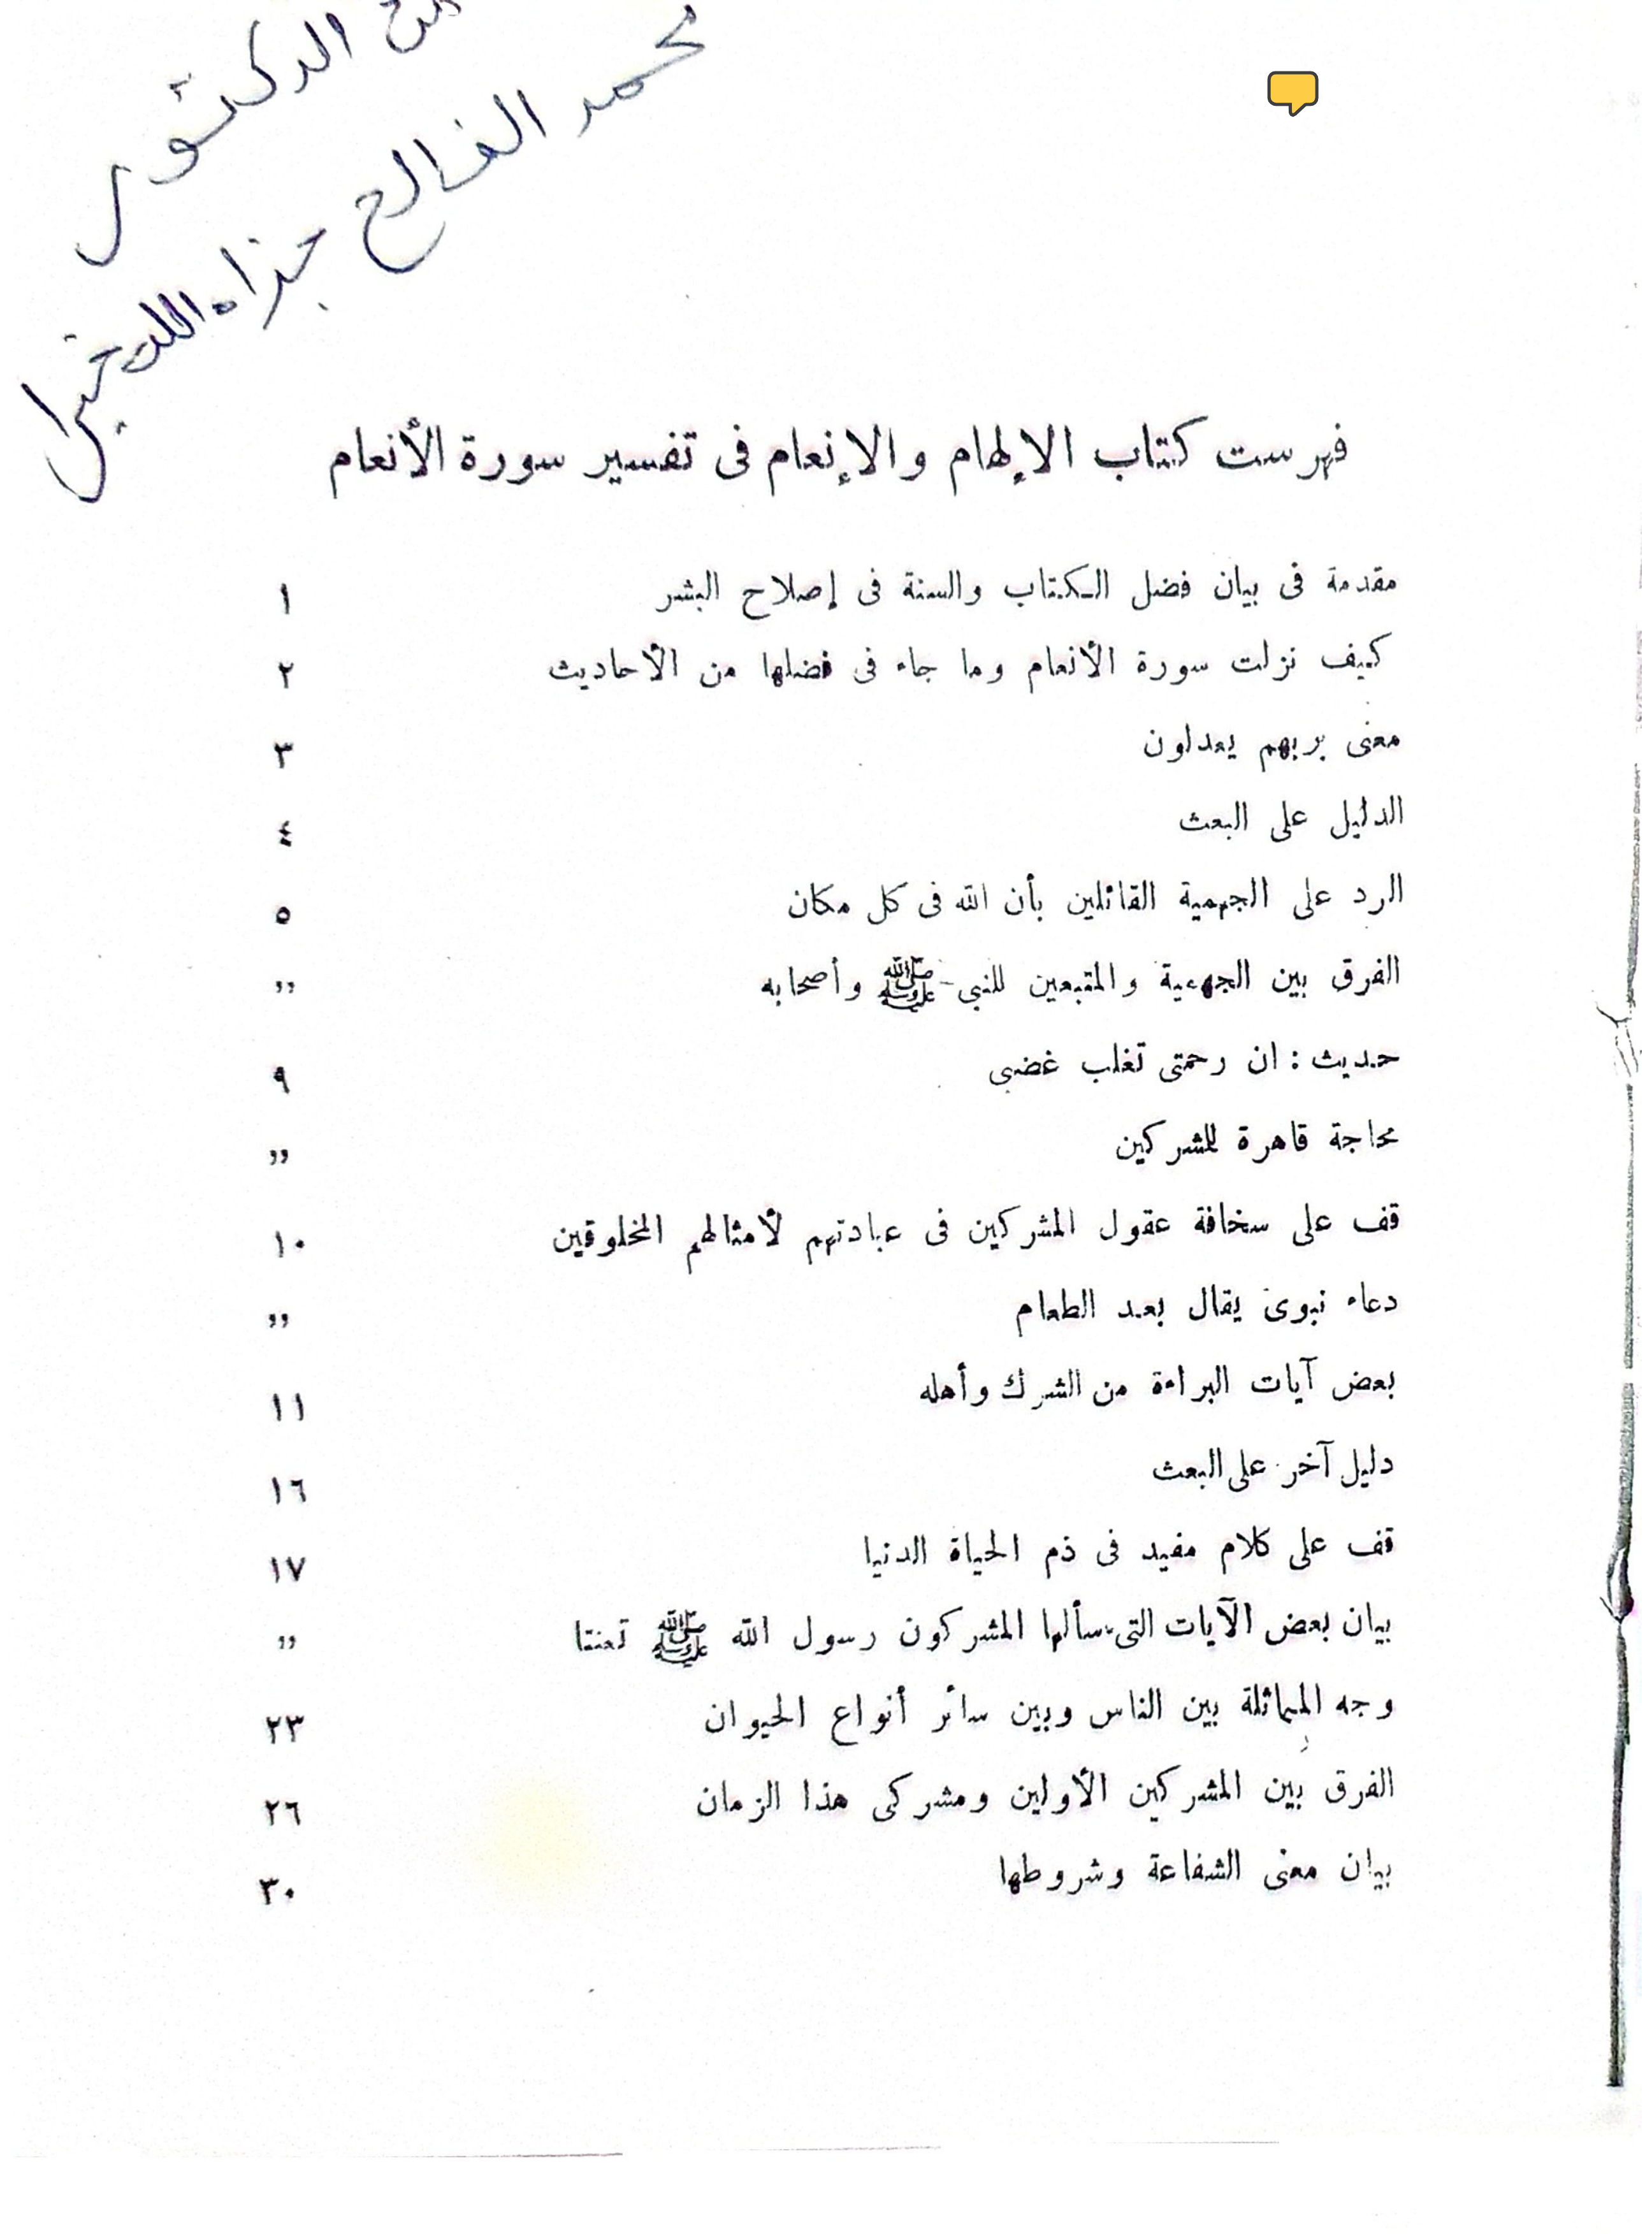 الدكتور
محمد الفالح
جزاه الله خيرا
فهرست كتاب الإلهام والإنعام فى تفسير سورة الأنعام
مقدمة فى بيان فضل الكتاب والسنة فى إصلاح البشر ١
كيف نزلت سورة الأنعام وما جاء فى فضلها من الأحاديث ٢
معنى بربهم يعدلون ٣
الدليل على البعث ٤
الرد على الجهمية القائلين بأن الله فى كل مكان ٥
الفرق بين الجهمية والمتبعين للنبى ﷺ وأصحابه ,,
حديث : ان رحمتى تغلب غضبى ٩
محاجة قاهرة للمشركين ,,
قف على سخافة عقول المشركين فى عبادتهم لأمثالهم المخلوقين ١٠
دعاء نبوى يقال بعد الطعام ,,
بعض آيات البراءة من الشرك وأهله ١١
دليل آخر على البعث ١٦
قف على كلام مفيد فى ذم الحياة الدنيا ١٧
بيان بعض الآيات التى سألها المشركون رسول الله ﷺ تعنتا ,,
وجه المماثلة بين الناس وبين سائر أنواع الحيوان ٢٣
الفرق بين المشركين الأولين ومشركى هذا الزمان ٢٦
بيان معنى الشفاعة وشروطها ٣٠